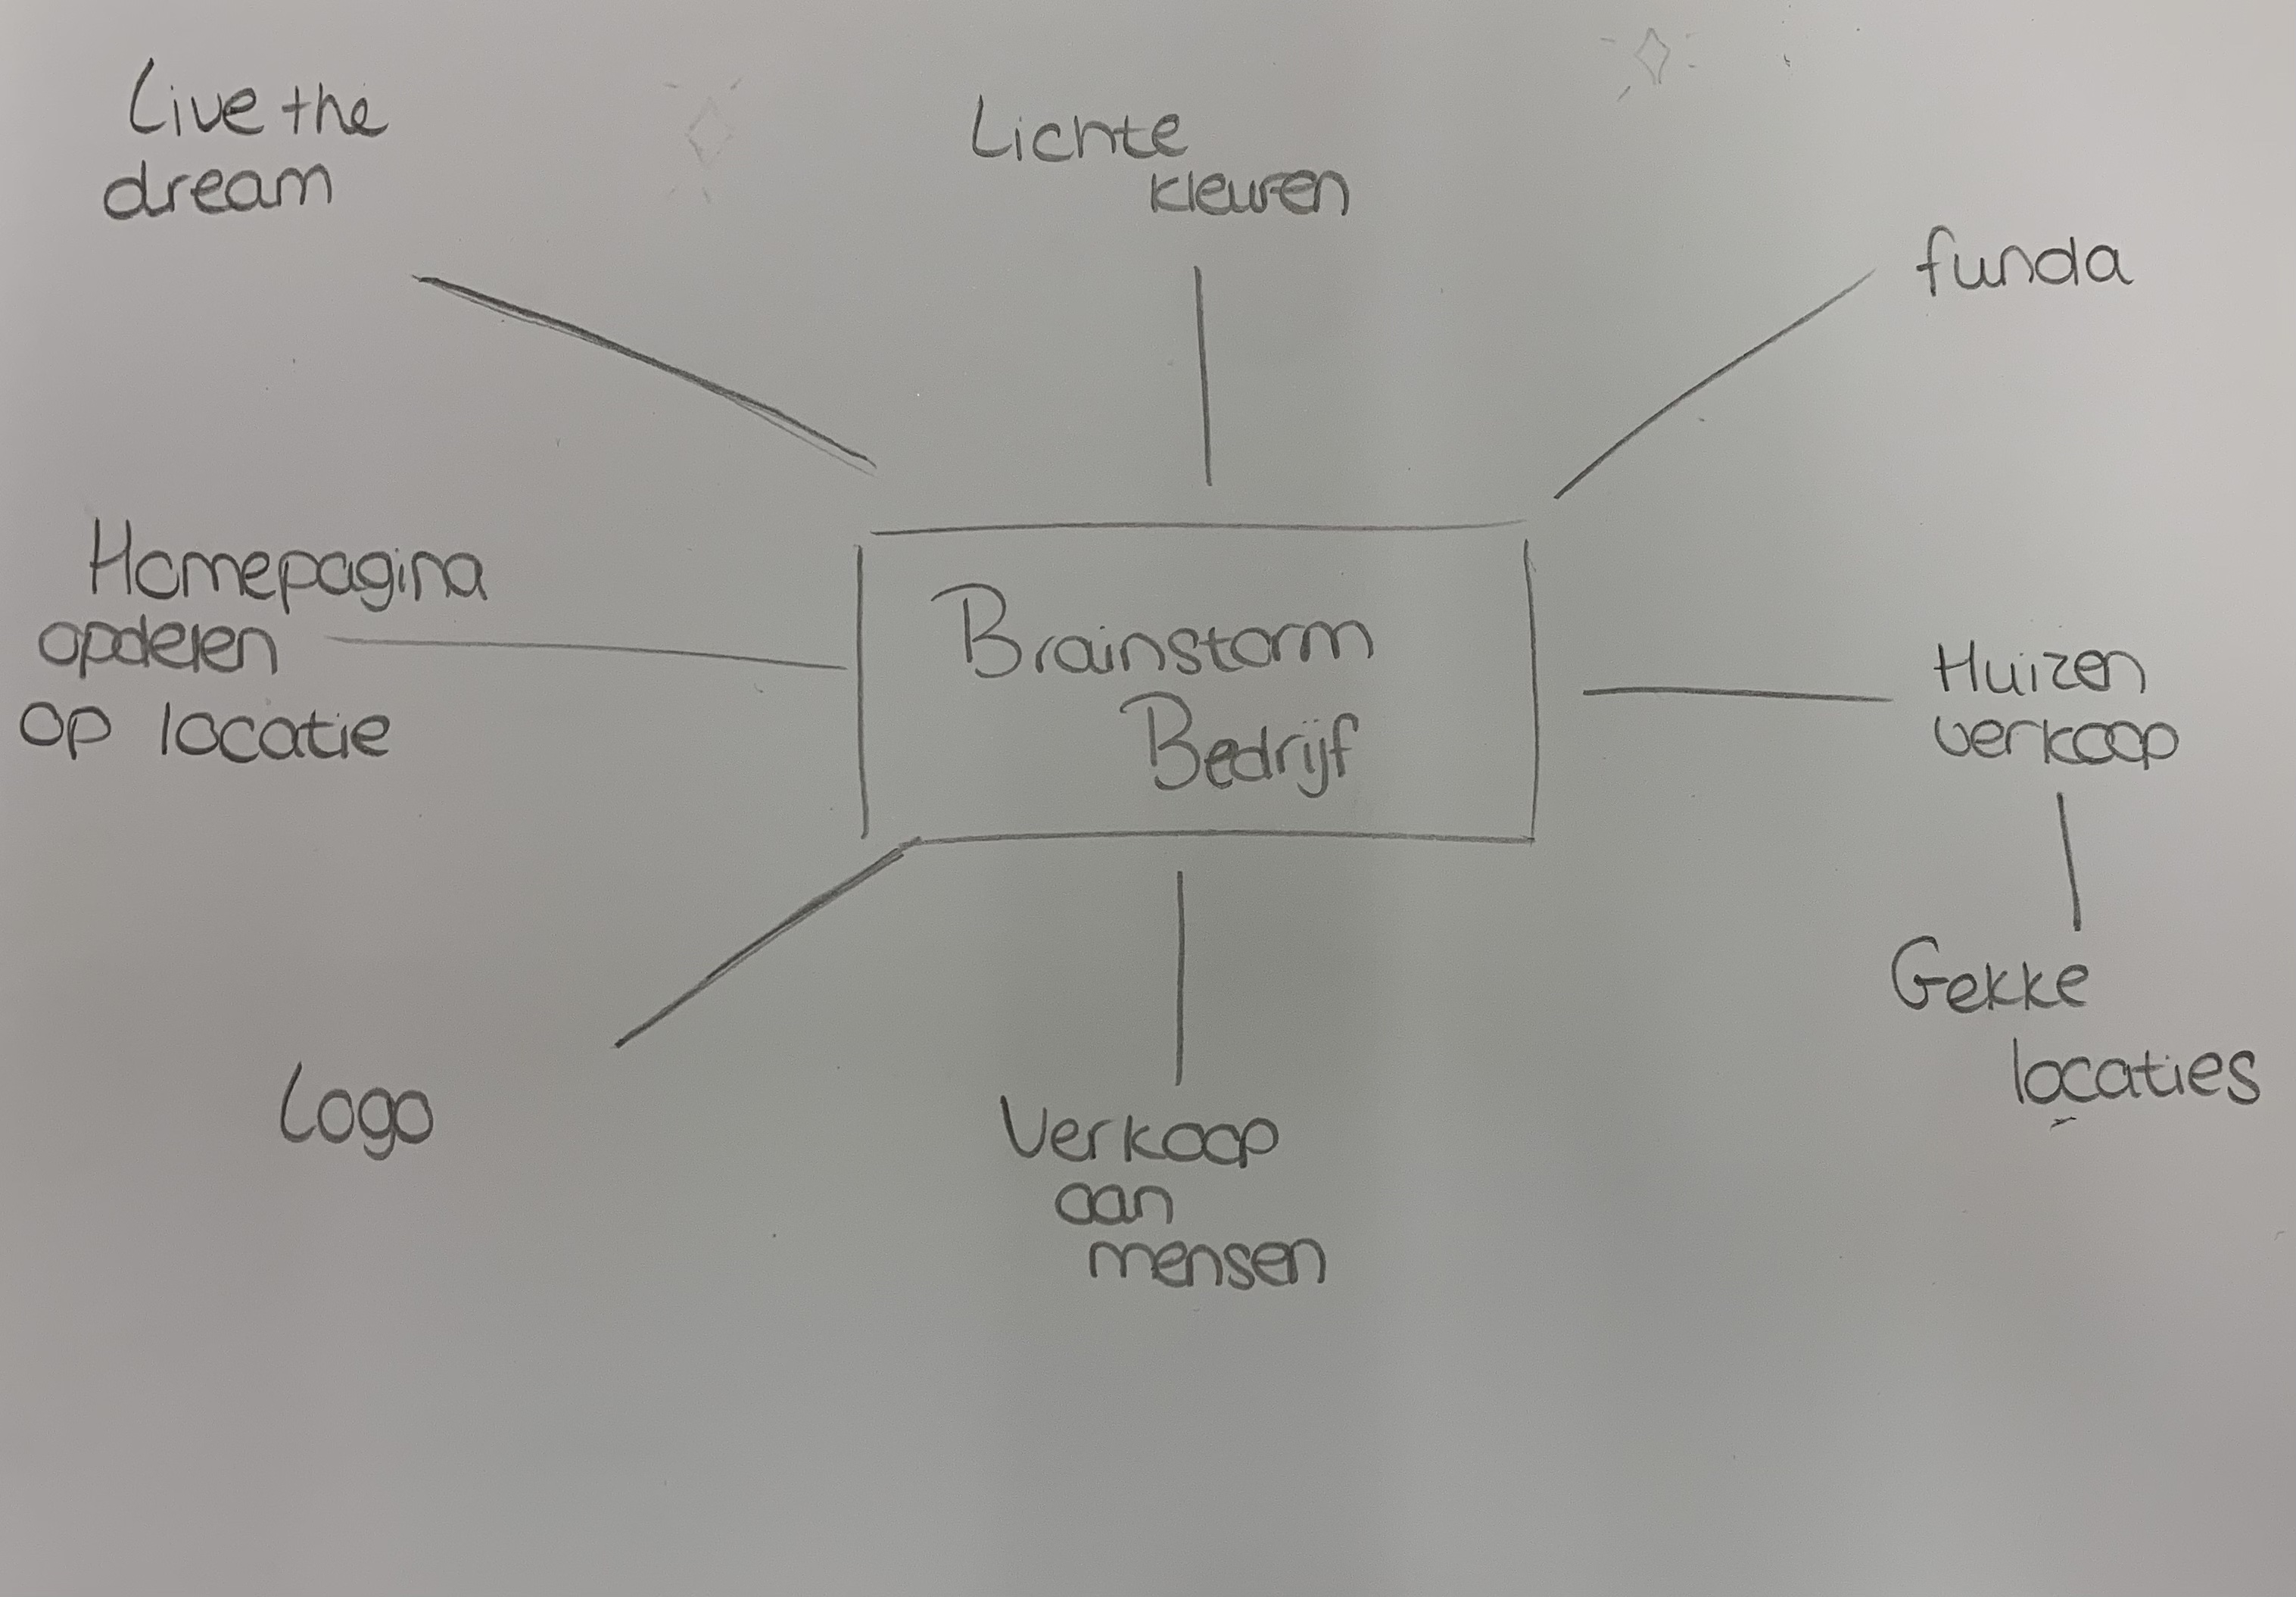 Live the
dream
Lichte
kleuren
funda
Homepagina
opdelen
op locatie
Brainstorm
Bedrijf
Huizen
verkoop
Gekke
locaties
Logo
Verkoop
aan
mensen